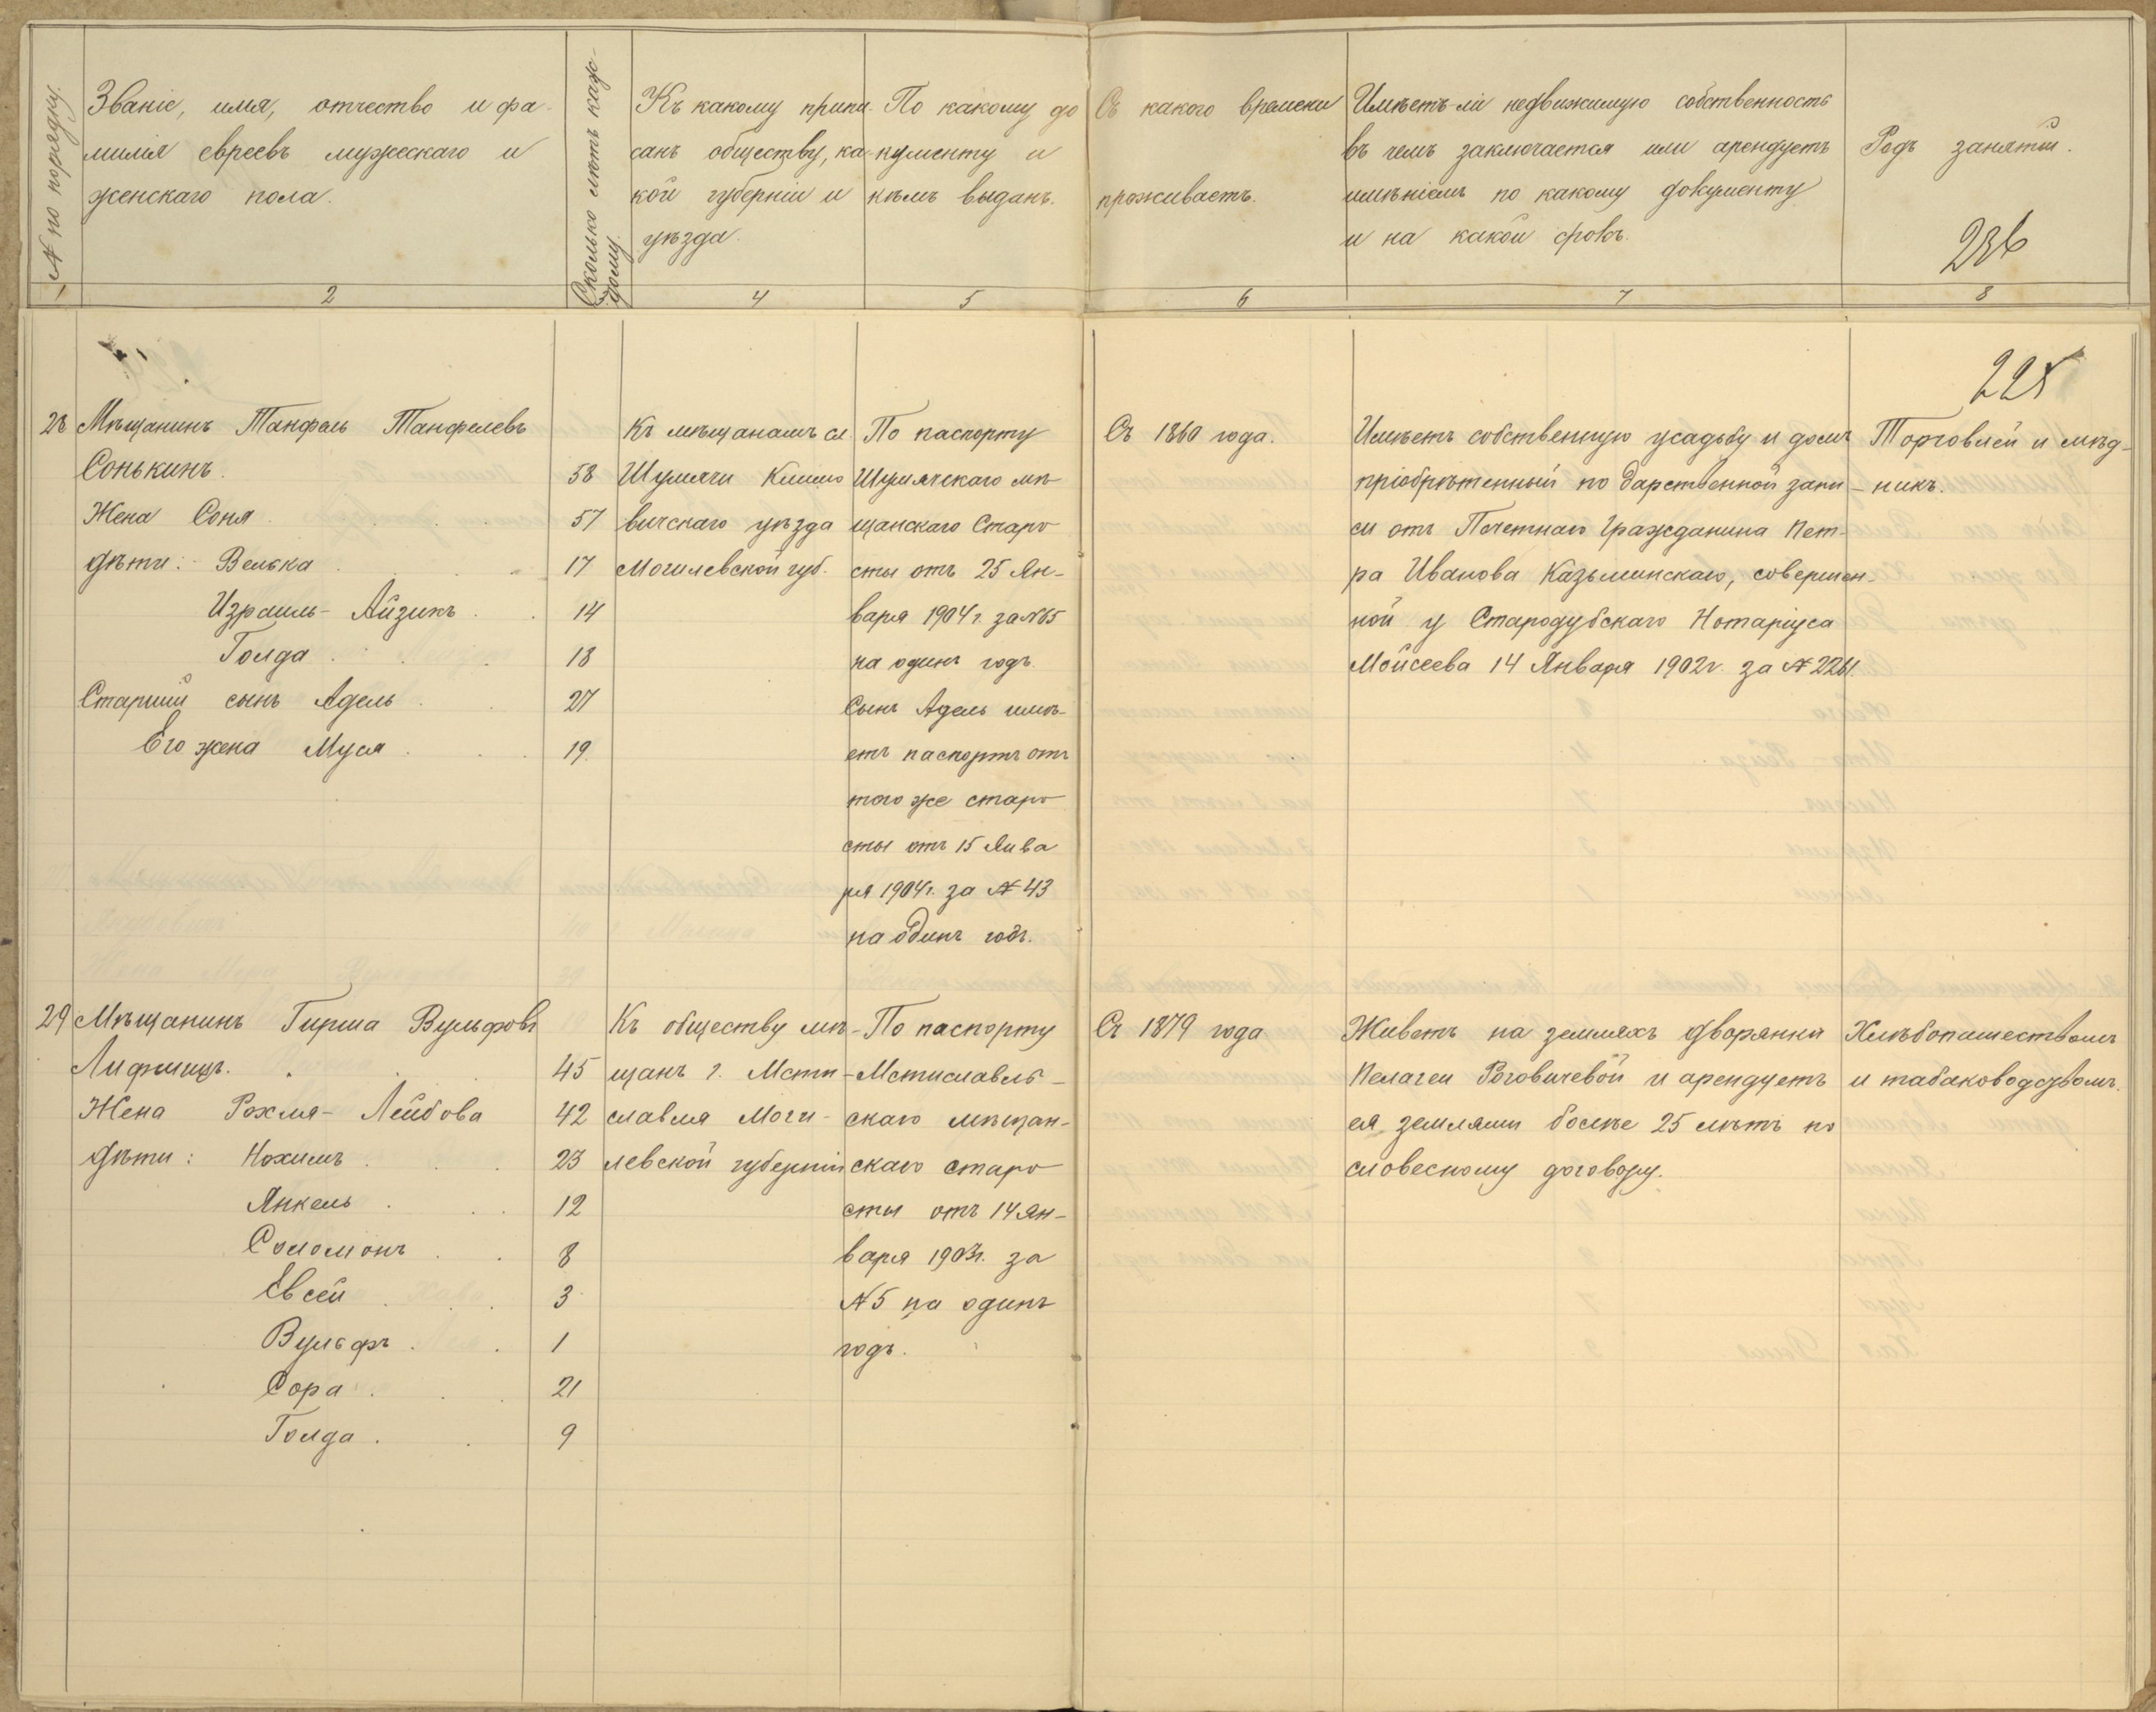 № по порядку.
Званіе, имя, отчество и фа-
милія евреевъ мужескаго и
женскаго пола.
Сколько лѣтъ каж-
дому.
Къ какому припи-
санъ обществу, ка-
кой губерніи и
уѣзда.
По какому до
кументу и
кѣмъ выданъ.
Съ какого времени
проживаетъ.
Имѣетъ-ли недвижимую собственность
въ чемъ заключается или арендуетъ
имѣніемъ по какому документу
и на какой срокъ.
Родъ занятій.
236
1 2 3 4 5 6 7 8
225
28 Мѣщанинъ Танфель Танфелевъ
Сонькинъ. 58
Жена Соня 57
дѣти: Велька 17
Израиль-Айзикъ 14
Голда 18
Старшій сынъ Адель 27
Его жена Муся 19
Къ мѣщанамъ
Шумячи Климо
вичскаго уѣзда
Могилевской губ.
По паспорту
Шумячскаго мѣ-
щанскаго Старо
сты отъ 25 Ян-
варя 1904 г. за №65
на одинъ годъ.
Сынъ Адель имѣ-
етъ паспортъ отъ
того же старо
сты отъ 15 Янва
ря 1904 г. за № 43
на одинъ годъ.
Съ 1860 года.
Имѣетъ собственную усадьбу и домъ
пріобрѣтенный по дарственной запи-
си отъ Почетнаго Гражданина Пет-
ра Иванова Казьминскаго, совершен-
ной у Стародубскаго Нотаріуса
Мойсеева 14 Января 1902 г. за № 2261.
Торговлей и мѣд-
никъ.
29 Мѣщанинъ Гирша Вульфовъ
Лифшицъ. 45
Жена Рохля-Лейбова 42
дѣти: Нохимъ 23
Янкель 12
Соломонъ 8
Евсей 3
Вульфъ 1
Сора 21
Голда 9
Къ обществу мѣ-
щанъ г. Мсти-
славля Моги-
левской губерніи
По паспорту
Мстиславль-
скаго мѣщан-
скаго старо
сты отъ 14 Ян-
варя 1903 г. за
№ 5 на одинъ
годъ.
Съ 1879 года
Живетъ на земляхъ дворянки
Пелагеи Роговичевой и арендуетъ
ея землями болѣе 25 лѣтъ по
словесному договору.
Хлѣбопашествомъ
и табаководствомъ.